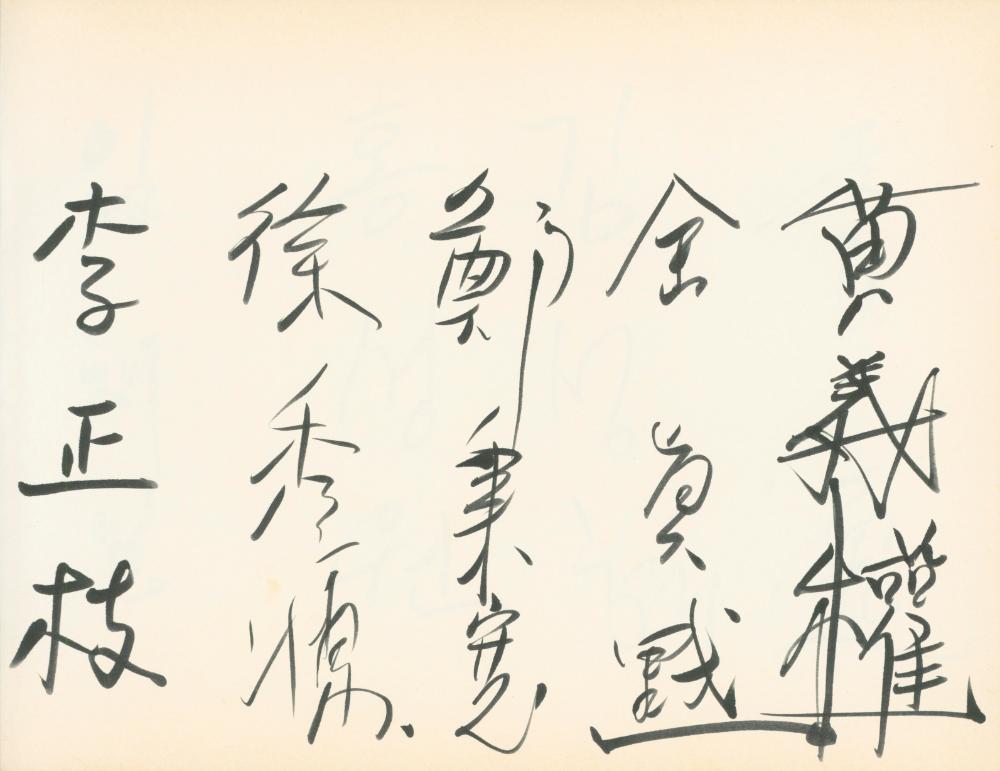 黃義權
金
鄭秉寬
徐秀
李正枝